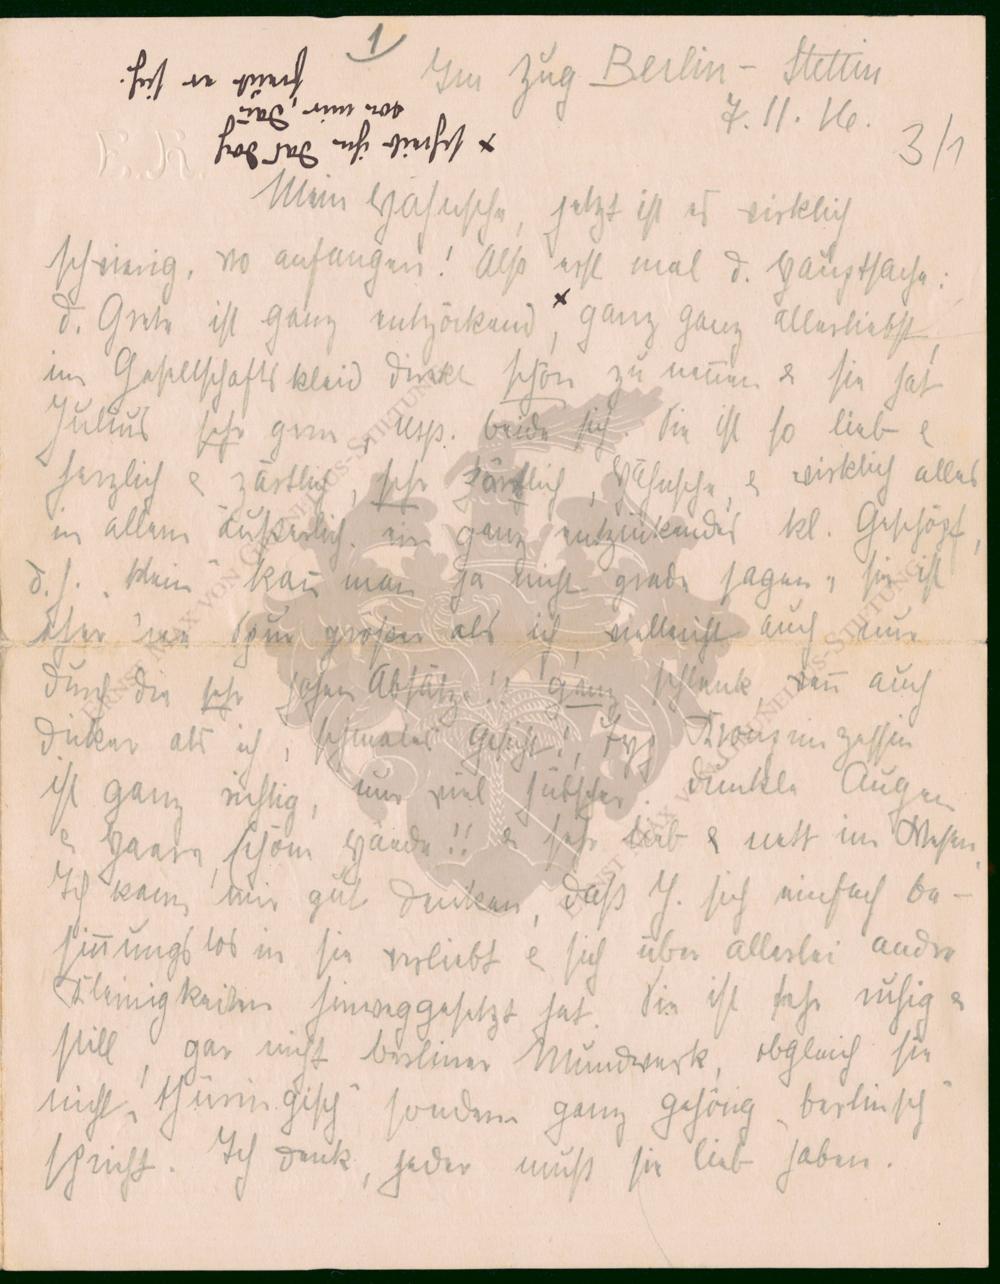 1
Im Zug Berlin – Stettin
7.11.16.
3/1
x schreib ihr das doch
von mir, dann
freut er sich.
E.K.
Mein Hähnsche, jetzt ist es wirklich
schwierig, wo anfangen! Also erst mal d. Hauptsache:
d. Grete ist ganz entzückend x, ganz ganz allerliebst,
im Gesellschaftskleid direkt schön zu nennen & sie hat
Julius sehr gern, resp. beide sich. Sie ist so lieb &
herzlich & zärtlich, sehr zärtlich, Hähnsche, & wirklich alles
in allem äußerlich ein ganz entzückendes kl. Geschöpf,
d.h. „klein“ kann man ja nicht grade sagen, sie ist
eher 'ne Spur größer als ich, vielleicht auch nur
durch die sehr hohen Absätze!! ganz schlank, dann auch
dicker als ich, schmales Gesicht!, Typ Kronprinzessin
ist ganz richtig, nur viel hübscher. Dunkle Augen
& Haare, schöne Hände!! & sehr lieb & nett im Wesen.
Ich kann mir gut denken, daß J. sich einfach be-
sinnungslos in sie verliebt & sich über allerlei andre
Kleinigkeiten hinweggesetzt hat. Sie ist sehr ruhig &
still, gar nicht berliner Mundwerk, obgleich sie
nicht „thüringisch“ sondern ganz gehörig „berlinsch“
spricht. Ich denk, jeder muß sie lieb haben.
ERNST MAX VON GRUNELIUS-STIFTUNG
ERNST MAX VON GRUNELIUS-STIFTUNG